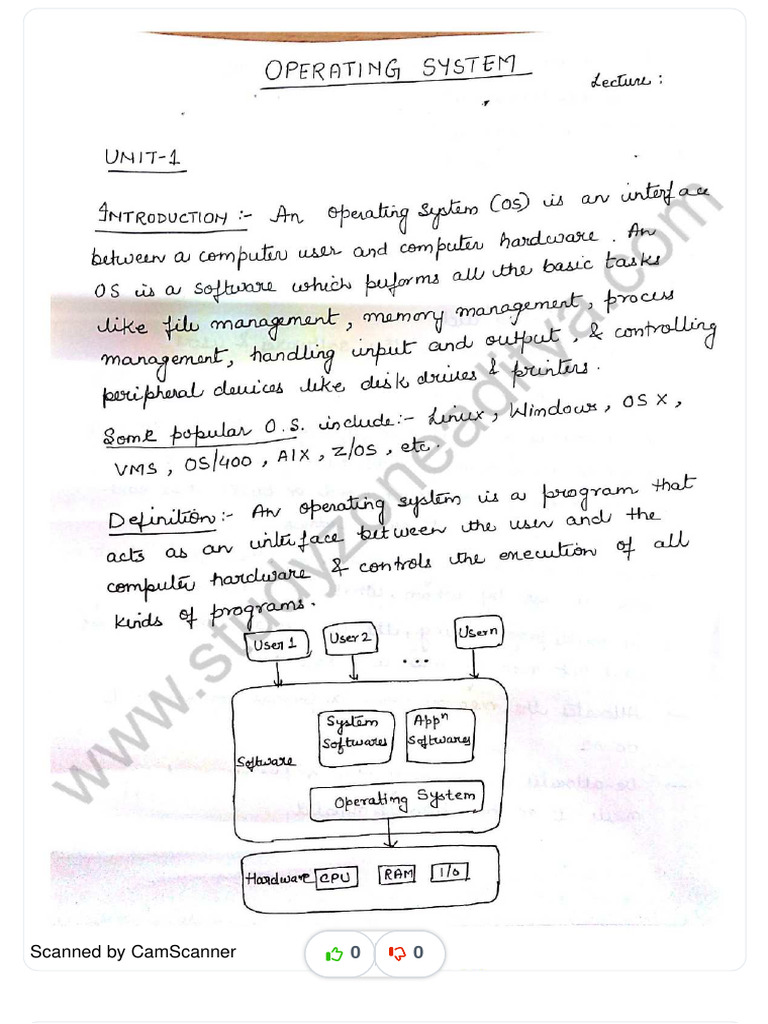 OPERATING SYSTEM
Lecture :
UNIT-1
INTRODUCTION :- An operating system (OS) is an interface
between a computer user and computer hardware. An
OS is a software which performs all the basic tasks
like file management, memory management, process
management, handling input and output, & controlling
peripheral devices like disk drives & printers.
Some popular O.S. include:- Linux, Windows, OS X,
VMS, OS/400, AIX, z/OS, etc.
Definition :- An operating system is a program that
acts as an interface between the user and the
computer hardware & controls the execution of all
kinds of programs.
User 1
User 2
...
User n
System
Softwares
Appⁿ
Softwares
Software
Operating System
Hardware
CPU
RAM
I/O
www.studyzoneaditya.com
Scanned by CamScanner
0
0